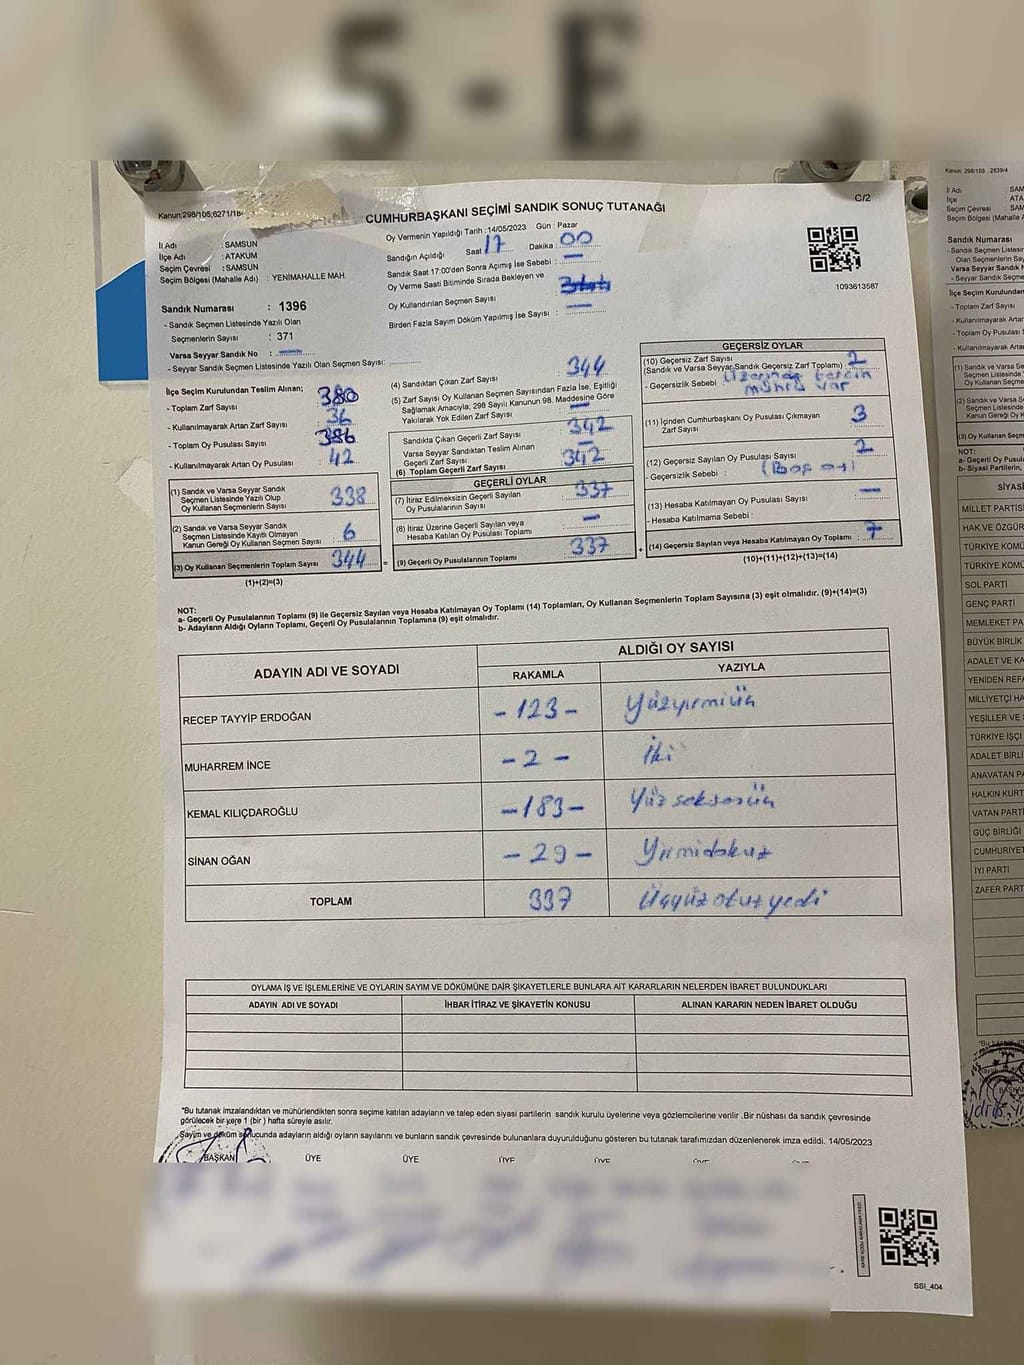 5-E
Kanun:298/105,6271/18
C/2
CUMHURBAŞKANI SEÇİMİ SANDIK SONUÇ TUTANAĞI
İl Adı : SAMSUN
İlçe Adı : ATAKUM
Seçim Çevresi : SAMSUN
Seçim Bölgesi (Mahalle Adı) : YENİMAHALLE MAH.
Sandık Numarası : 1396
- Sandık Seçmen Listesinde Yazılı Olan
Seçmenlerin Sayısı : 371
Varsa Seyyar Sandık No : —
- Seyyar Sandık Seçmen Listesinde Yazılı Olan Seçmen Sayısı:
Oy Vermenin Yapıldığı Tarih : 14/05/2023 Gün : Pazar
Sandığın Açıldığı Saat 17 Dakika : 00
Sandık Saat 17:00'den Sonra Açımış İse Sebebi : —
Oy Verme Saati Bitiminde Sırada Bekleyen ve
Oy Kullandırılan Seçmen Sayısı
Birden Fazla Sayım Döküm Yapılmış İse Sayısı : —
1093613587
İlçe Seçim Kurulundan Teslim Alınan;
- Toplam Zarf Sayısı 380
- Kullanılmayarak Artan Zarf Sayısı 36
- Toplam Oy Pusulası Sayısı 386
- Kullanılmayarak Artan Oy Pusulası 42
(1) Sandık ve Varsa Seyyar Sandık
Seçmen Listesinde Yazılı Olup
Oy Kullanan Seçmenlerin Sayısı 338
(2) Sandık ve Varsa Seyyar Sandık
Seçmen Listesinde Kayıtlı Olmayan
Kanun Gereği Oy Kullanan Seçmen Sayısı 6
(3) Oy Kullanan Seçmenlerin Toplam Sayısı 344
(1)+(2)=(3)
(4) Sandıktan Çıkan Zarf Sayısı 344
(5) Zarf Sayısı Oy Kullanan Seçmen Sayısından Fazla İse, Eşitliği
Sağlamak Amacıyla; 298 Sayılı Kanunun 98. Maddesine Göre
Yakılarak Yok Edilen Zarf Sayısı —
Sandıkta Çıkan Geçerli Zarf Sayısı 342
Varsa Seyyar Sandıktan Teslim Alınan
Geçerli Zarf Sayısı —
(6) Toplam Geçerli Zarf Sayısı 342
GEÇERLİ OYLAR
(7) İtiraz Edilmeksizin Geçerli Sayılan
Oy Pusulalarının Sayısı 337
(8) İtiraz Üzerine Geçerli Sayılan veya
Hesaba Katılan Oy Pusulası Toplamı —
(9) Geçerli Oy Pusulalarının Toplamı 337
GEÇERSİZ OYLAR
(10) Geçersiz Zarf Sayısı
(Sandık ve Varsa Seyyar Sandık Geçersiz Zarf Toplamı) 2
- Geçersizlik Sebebi Üzerinde tercih mührü var
(11) İçinden Cumhurbaşkanı Oy Pusulası Çıkmayan
Zarf Sayısı 3
(12) Geçersiz Sayılan Oy Pusulası Sayısı 2
- Geçersizlik Sebebi : (Boş oy)
(13) Hesaba Katılmayan Oy Pusulası Sayısı —
- Hesaba Katılmama Sebebi :
(14) Geçersiz Sayılan veya Hesaba Katılmayan Oy Toplamı : 7
(10)+(11)+(12)+(13)=(14)
NOT:
a- Geçerli Oy Pusulalarının Toplamı (9) ile Geçersiz Sayılan veya Hesaba Katılmayan Oy Toplamı (14) Toplamları, Oy Kullanan Seçmenlerin Toplam Sayısına (3) eşit olmalıdır. (9)+(14)=(3)
b- Adayların Aldığı Oyların Toplamı, Geçerli Oy Pusulalarının Toplamına (9) eşit olmalıdır.
ADAYIN ADI VE SOYADI ALDIĞI OY SAYISI
RAKAMLA YAZIYLA
RECEP TAYYİP ERDOĞAN -123- Yüzyirmiüç
MUHARREM İNCE -2- İki
KEMAL KILIÇDAROĞLU -183- Yüz seksenüç
SİNAN OĞAN -29- Yirmidokuz
TOPLAM 337 Üçyüzotuzyedi
OYLAMA İŞ VE İŞLEMLERİNE VE OYLARIN SAYIM VE DÖKÜMÜNE DAİR ŞİKAYETLERLE BUNLARA AİT KARARLARIN NELERDEN İBARET BULUNDUKLARI
ADAYIN ADI VE SOYADI İHBAR İTİRAZ VE ŞİKAYETİN KONUSU ALINAN KARARIN NEDEN İBARET OLDUĞU
"Bu tutanak imzalandıktan ve mühürlendikten sonra seçime katılan adayların ve talep eden siyasi partilerin sandık kurulu üyelerine veya gözlemcilerine verilir .Bir nüshası da sandık çevresinde
görülecek bir yere 1 (bir ) hafta süreyle asılır.
Sayım ve döküm sonucunda adayların aldığı oyların sayılarını ve bunların sandık çevresinde bulunanlara duyurulduğunu gösteren bu tutanak tarafımızdan düzenlenerek imza edildi. 14/05/2023
BAŞKAN ÜYE ÜYE ÜYE ÜYE ÜYE ÜYE
SSI_404
Kanun: 298/105 , 2839/4
İl Adı SAMS
İlçe ATA
Seçim Çevresi SAM
Seçim Bölgesi (Mahalle Adı)
Sandık Numarası
- Sandık Seçmen Listesin
Olan Seçmenlerin Sayısı
Varsa Seyyar Sandık N
- Seyyar Sandık Seçmen
İlçe Seçim Kurulundan
- Toplam Zarf Sayısı
- Kullanılmayarak Artan
- Toplam Oy Pusulası
- Kullanılmayarak Arta
SİYASİ
MİLLET PARTİSİ
HAK VE ÖZGÜR
TÜRKİYE KOMÜ
TÜRKİYE KOMÜ
SOL PARTİ
GENÇ PARTİ
MEMLEKET PA
BÜYÜK BİRLİK
ADALET VE KA
YENİDEN REFA
MİLLİYETÇİ HA
YEŞİLLER VE S
TÜRKİYE İŞÇİ
ADALET BİRLİ
ANAVATAN PA
HALKIN KURT
VATAN PARTİ
GÜÇ BİRLİĞİ
CUMHURİYET
İYİ PARTİ
ZAFER PART